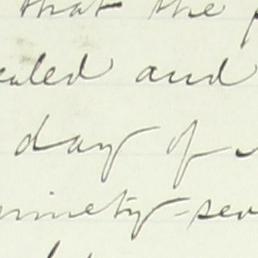 that the
ealed and
day of
ninety-sev